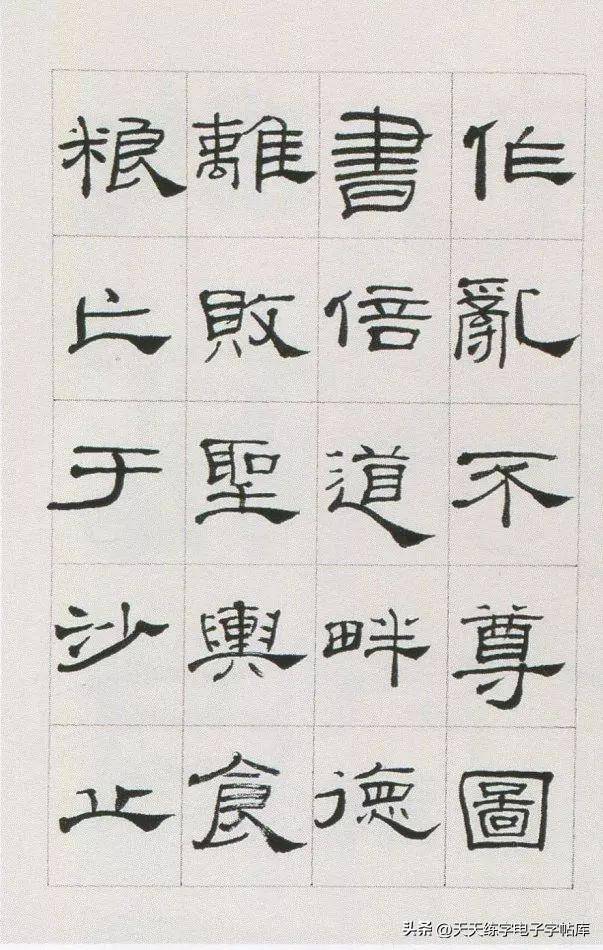 作亂不尊圖
書倍道畔德
離敗聖輿食
粮亡于沙丘
头条 @天天练字电子字帖库